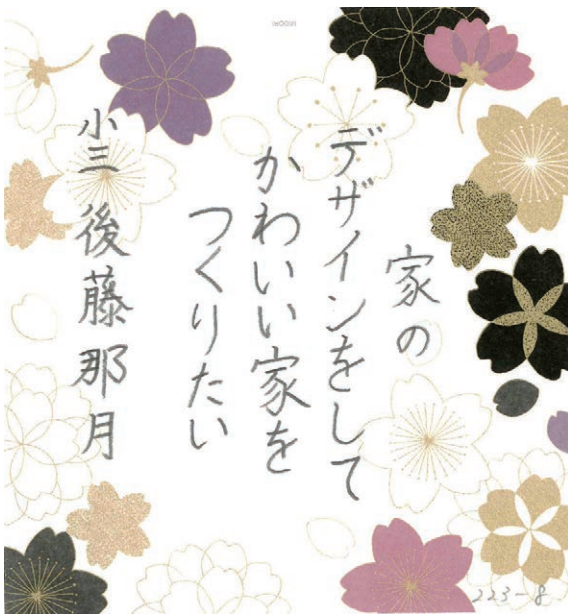 家の
デザインをして
かわいい家を
つくりたい
小三 後藤那月
223-8